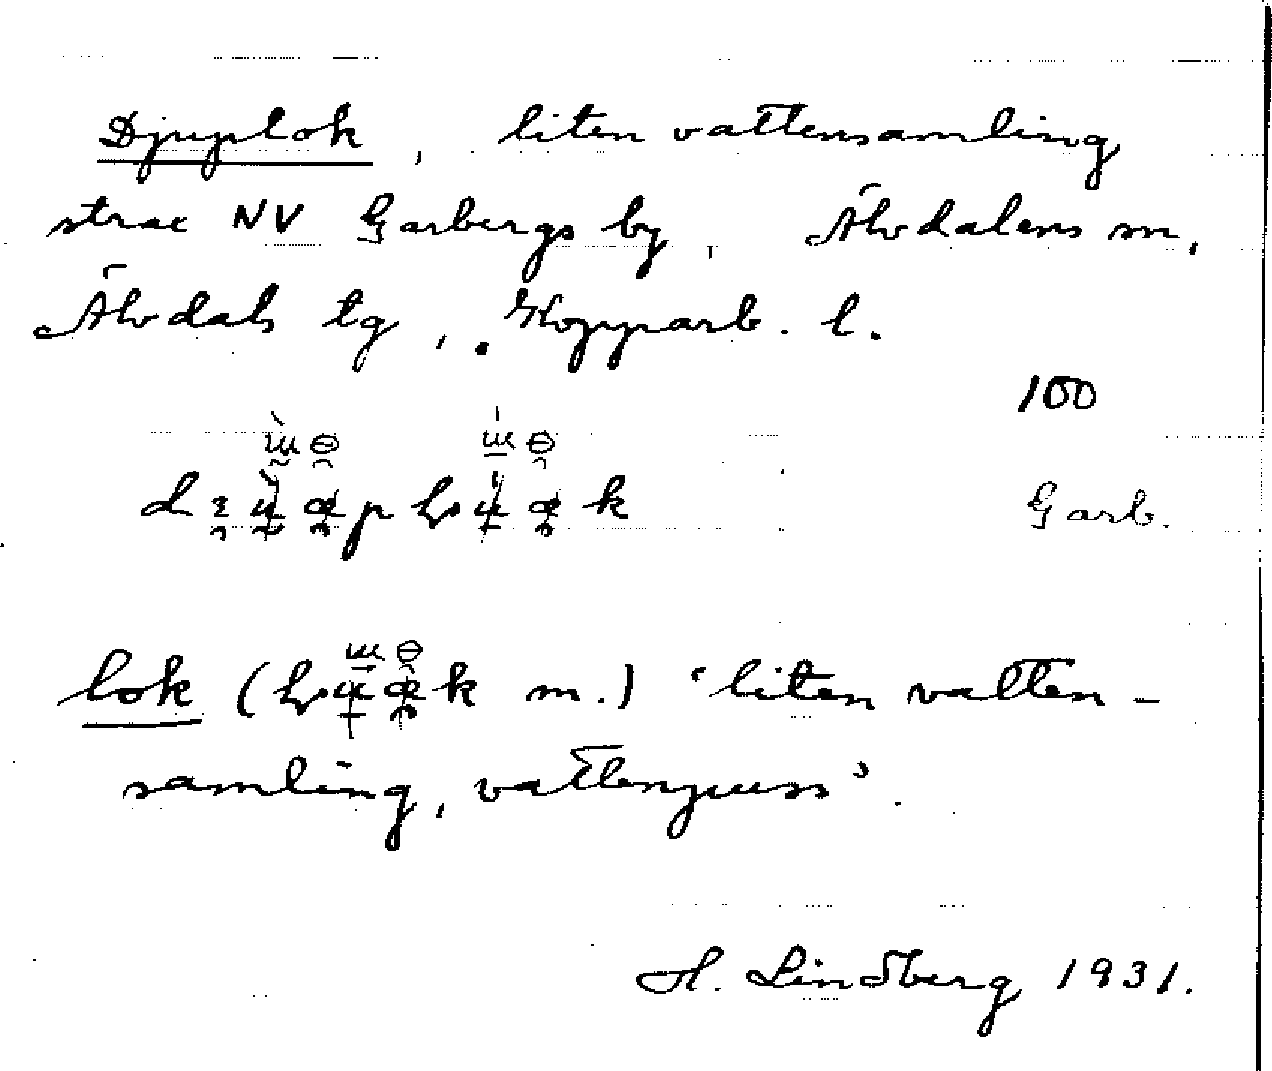 Djuplok, liten vattensamling
strax NV Garbergs by, Älvdalens sn,
Älvdals tg, Kopparb. l.
100
Garb.
lok (k m.) 'liten vatten-
samling, vattenpuss'.
H. Lindberg 1931.